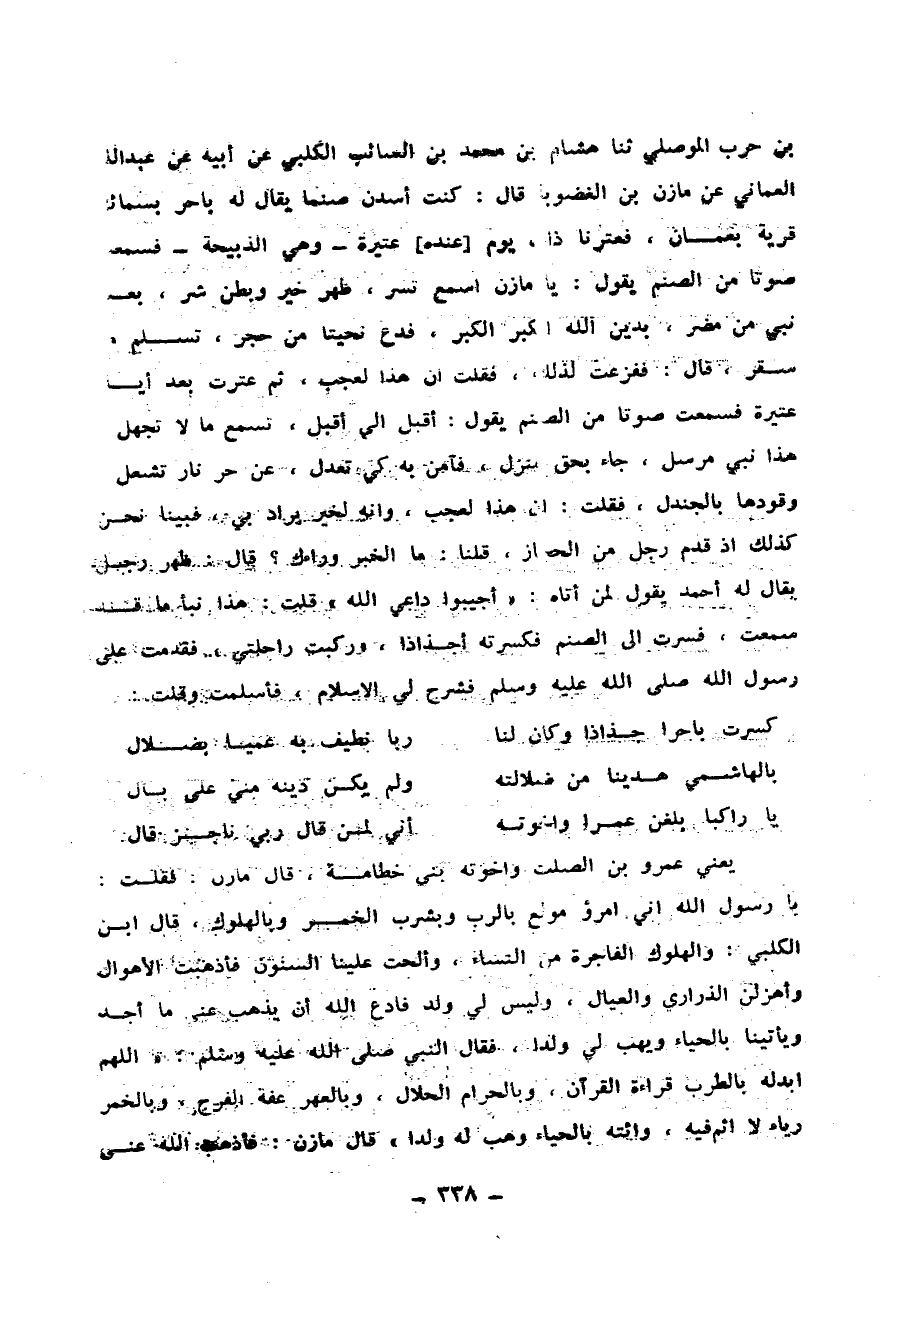 بن حرب الموصلي ثنا هشام بن محمد بن السائب الكلبي عن أبيه عن عبدالله
العماني عن مازن بن الغضوبة قال : كنت أسدن صنما يقال له باحر بسمائل
قرية بعمـــان ، فعترنا ذات يوم [عنده] عتيرة ـ وهي الذبيحة ـ فسمعت
صوتا من الصنم يقول : يا مازن اسمع تسر ، ظهر خير وبطن شر ، بعــث
نبي من مضر ، بدين الله الكبر الكبر ، فدع نحيتا من حجر ، تســـلم من
ســقر ، قال : ففزعت لذلك ، فقلت ان هذا لعجب ، ثم عترت بعد أيــام
عتيرة فسمعت صوتا من الصنم يقول : أقبل الي أقبل ، تسمع ما لا تجهل
هذا نبي مرسل ، جاء بحق منزل ، فآمن به كي تعدل ، عن حر نار تشعل
وقودها بالجندل ، فقلت : ان هذا لعجب ، وانه لخير يراد بي ، فبينا نحــن
كذلك اذ قدم رجل من الحجاز ، قلنا : ما الخبر وراءك ؟ قال : ظهر رجـل
يقال له أحمد يقول لمن أتاه : « أجيبوا داعي الله » قلت : هذا نبأ ما قــد
سمعت ، فسرت الى الصنم فكسرته أجـذاذا ، وركبت راحلتي ، فقدمت على
رسول الله صلى الله عليه وسلم فشرح لي الاسلام ، فأسلمت وقلت :
كسرت باحرا جــذاذا وكان لنا ربا نطيف به عميــا بضـــلال
بالهاشــمي هــدينا من ضلالته ولم يكــن دينه مني على بــال
يا راكبا بلغن عمـرا واخوتــه أني لمـن قال ربي ناجــر قال
يعني عمرو بن الصلت واخوته بني خطامــة ، قال مازن : فقلــت :
يا رسول الله اني امرؤ مولع بالرب وبشرب الخمــر وبالهلوك ، قال ابــن
الكلبي : والهلوك الفاجرة من النساء ، وألحت علينا السنون فأذهبت الأهوال
وأهزلن الذراري والعيال ، وليس لي ولد فادع الله أن يذهب عني ما أجــد
ويأتينا بالحياء ويهب لي ولدا ، فقال النبي صلى الله عليه وسلم : « اللهم
ابدله بالطرب قراءة القرآن ، وبالحرام الحلال ، وبالعهر عفة الفرج ، وبالخمر
رياء لا اثم فيه ، وائته بالحياء وهب له ولدا » قال مازن : فأذهب الله عنــي
ـ ٣٣٨ ـ